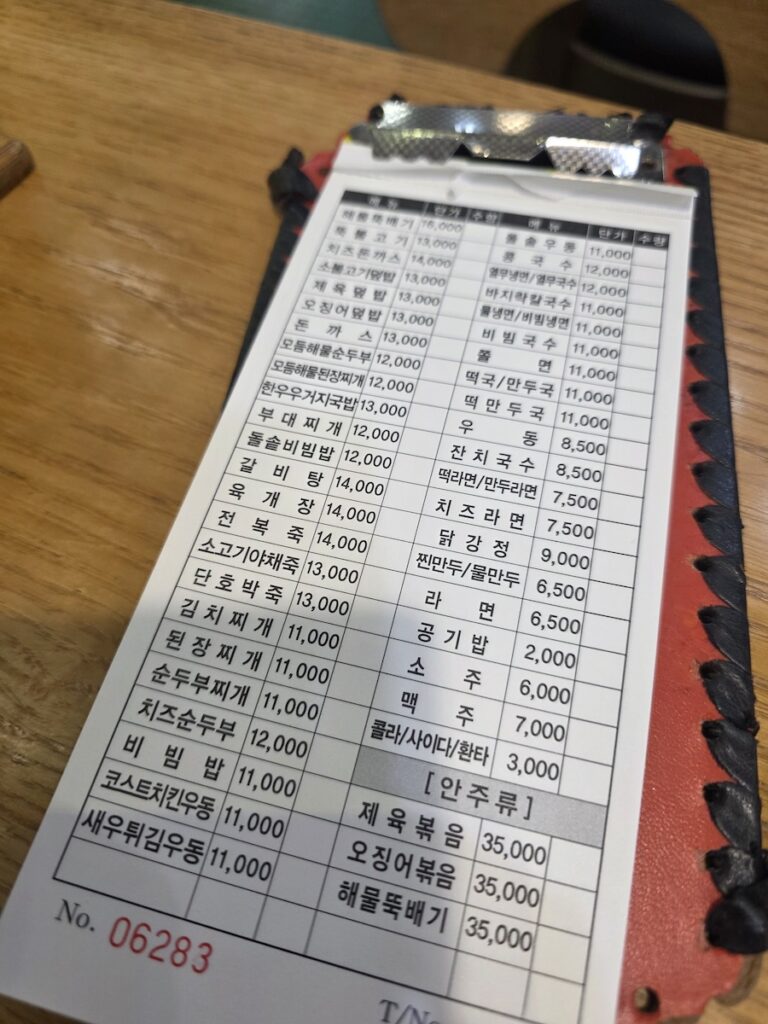 메 뉴 단가 수량
해물뚝배기
뚝 불 고 기 13,000
치즈돈까스 14,000
소불고기덮밥 13,000
제 육 덮 밥 13,000
오징어덮밥 13,000
돈 까 스 13,000
모듬해물순두부 12,000
모듬해물된장찌개 12,000
한우우거지국밥 13,000
부 대 찌 개 12,000
돌솥비빔밥 12,000
갈 비 탕 14,000
육 개 장 14,000
전 복 죽 14,000
소고기야채죽 13,000
단 호 박 죽 13,000
김 치 찌 개 11,000
된 장 찌 개 11,000
순두부찌개 11,000
치즈순두부 12,000
비 빔 밥 11,000
코스트치킨우동 11,000
새우튀김우동 11,000
메 뉴 단가 수량
돌 솥 우 동 11,000
콩 국 수 12,000
열무냉면/열무국수 12,000
바지락칼국수 11,000
물냉면/비빔냉면 11,000
비 빔 국 수 11,000
쫄 면 11,000
떡국/만두국 11,000
떡 만 두 국 11,000
우 동 8,500
잔 치 국 수 8,500
떡라면/만두라면 7,500
치 즈 라 면 7,500
닭 강 정 9,000
찐만두/물만두 6,500
라 면 6,500
공 기 밥 2,000
소 주 6,000
맥 주 7,000
콜라/사이다/환타 3,000
[ 안 주 류 ]
제 육 볶 음 35,000
오징어볶음 35,000
해물뚝배기 35,000
No. 06283
T/No